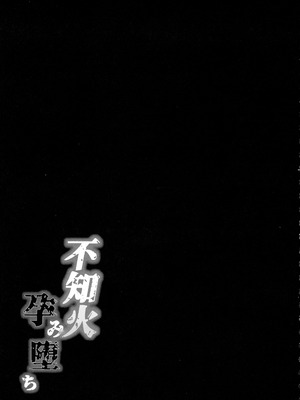 不知火
孕み堕ち